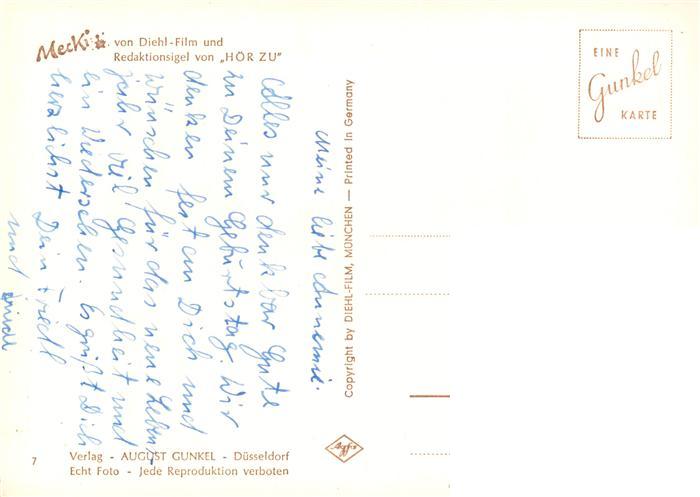 Mecki von Diehl-Film und
Redaktionsigel von „HÖR ZU"
EINE
Gunkel
KARTE
Meine liebe Annemie.
Alles nur denkbar Gute
zu Deinem Geburtstag. Wir
denken fest an Dich und
wünschen für das neue Lebens-
jahr viel Gesundheit und
ein Wiedersehen. Es grüßt Dich
herzlichst Dein Friedl
und
Copyright by DIEHL-FILM, MÜNCHEN — Printed in Germany
Agfa
7
Verlag - AUGUST GUNKEL - Düsseldorf
Echt Foto - Jede Reproduktion verboten